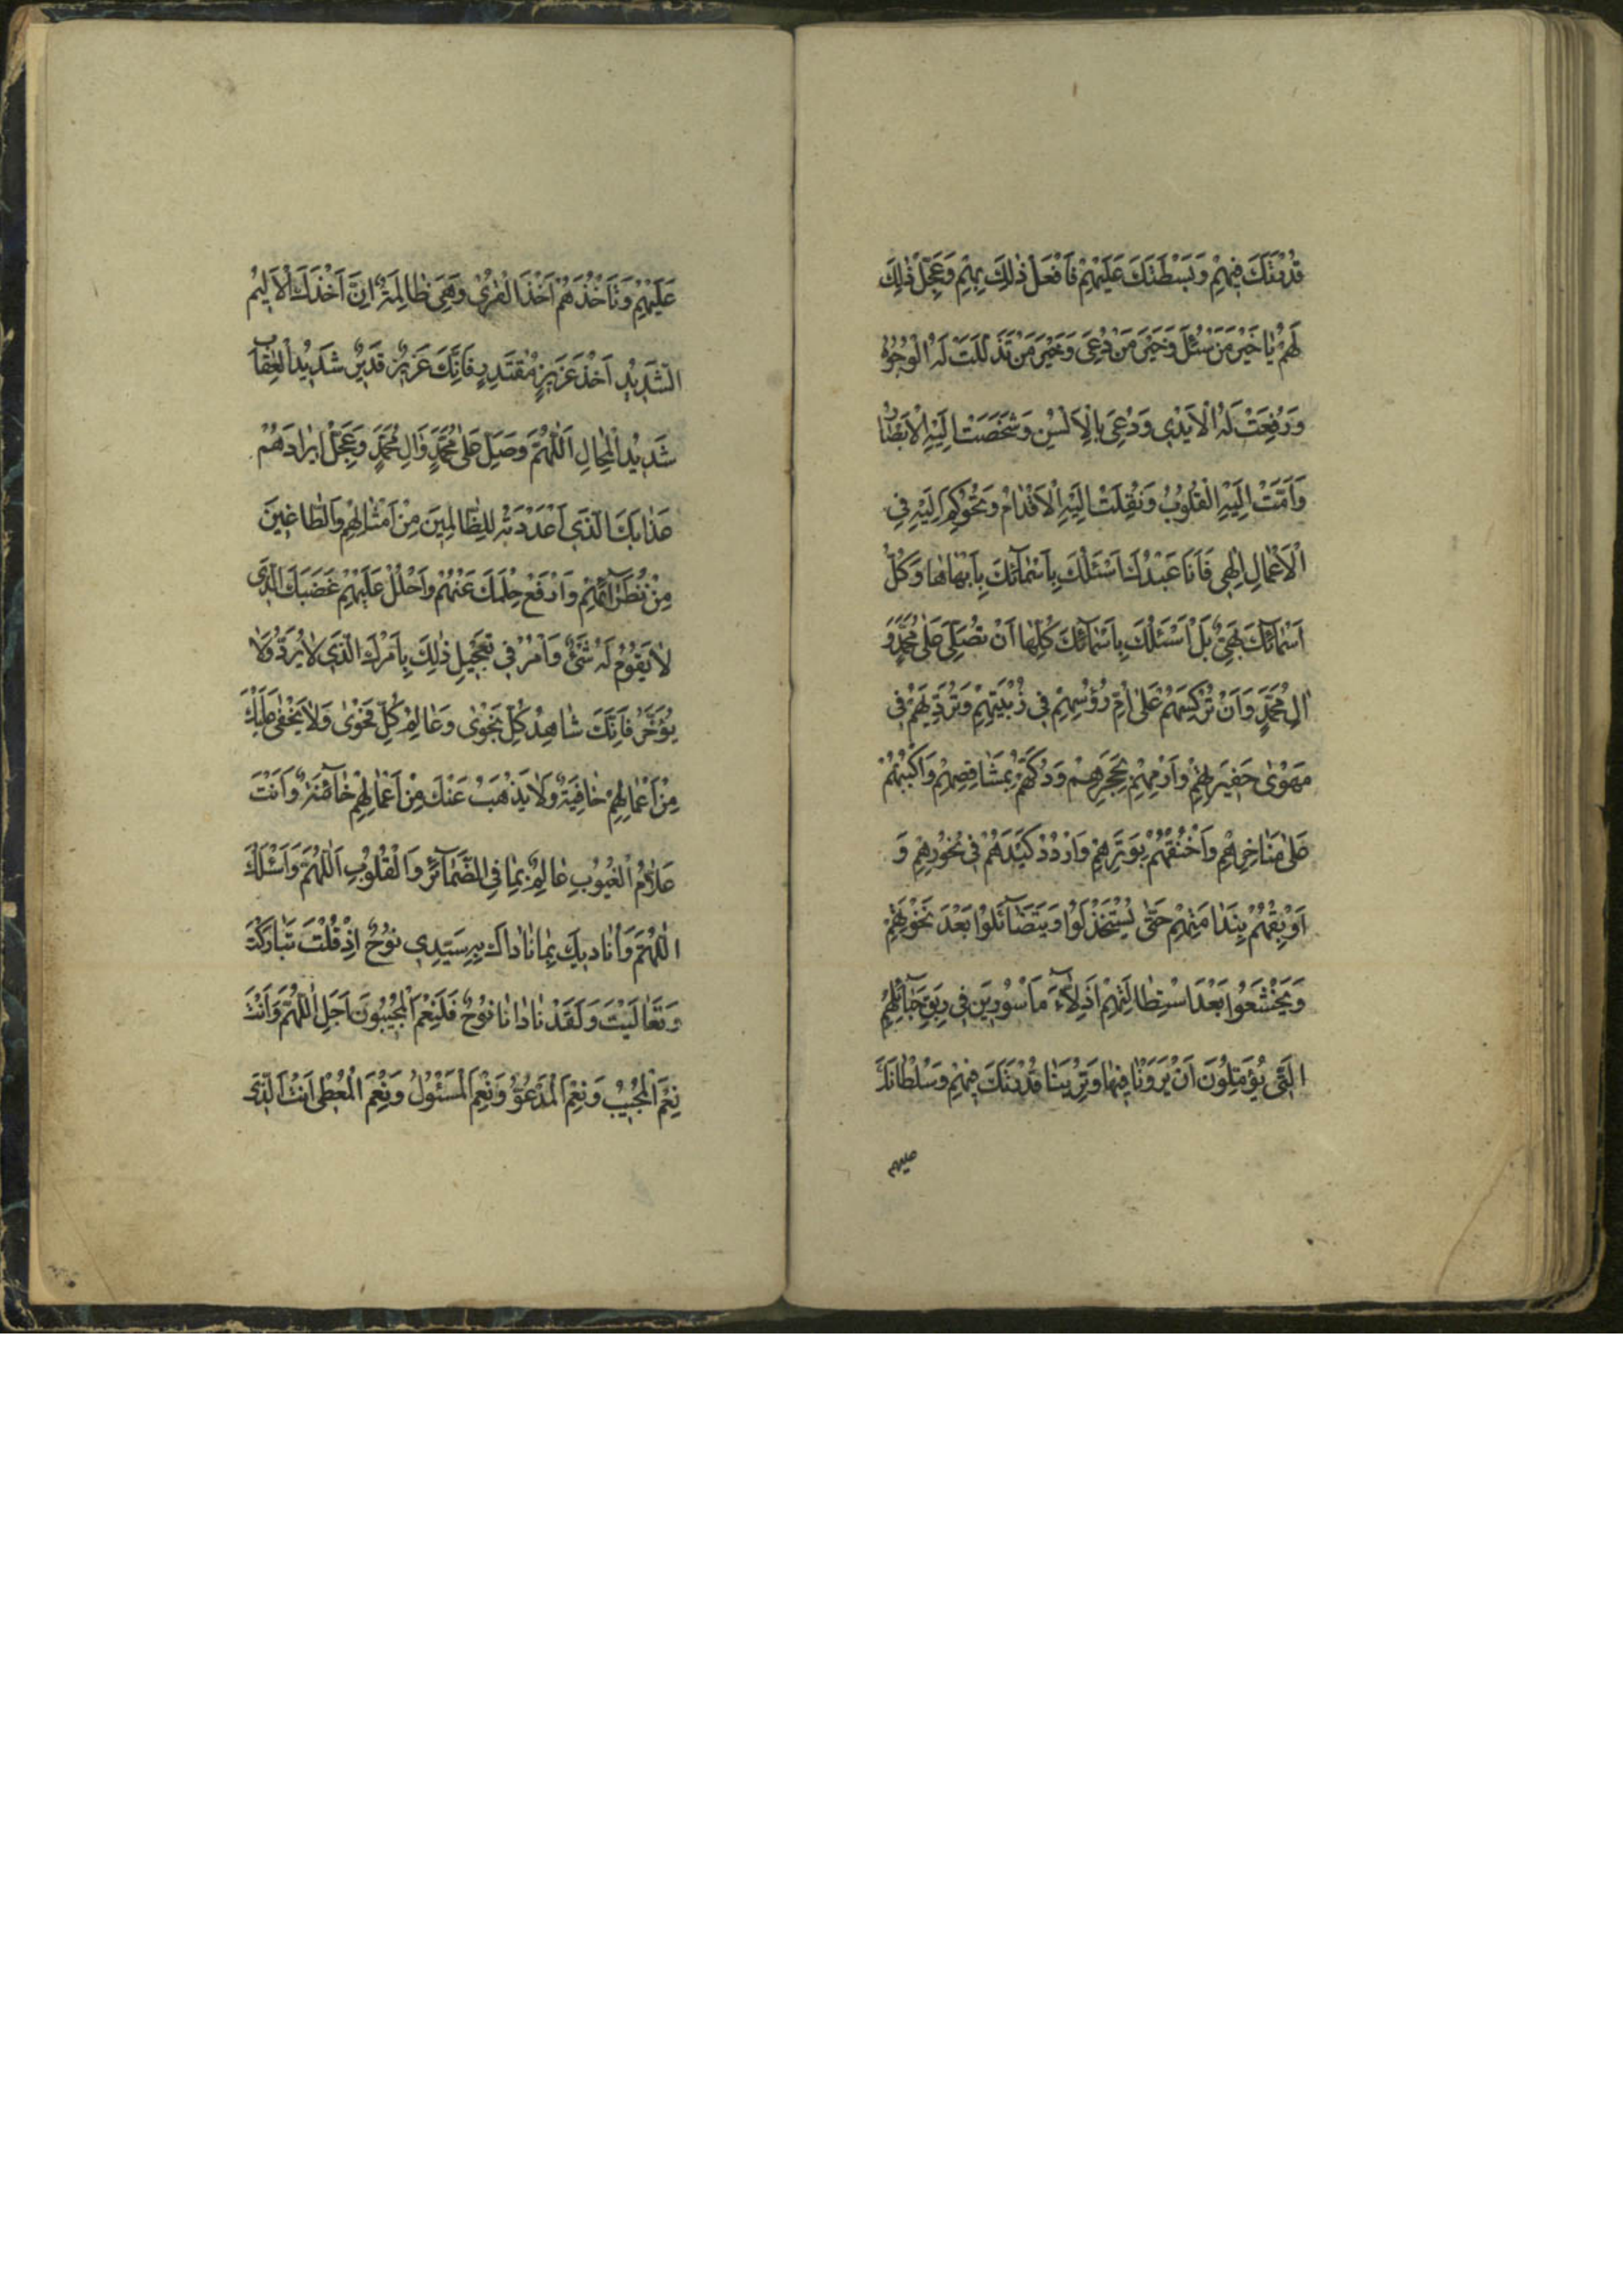 قُدْرَتَكَ فِيهِمْ وَبَسْطَتَكَ عَلَيْهِمْ فَافْعَلْ ذٰلِكَ بِهِمْ وَعَجِّلْ ذٰلِكَ
لَهُمْ يٰا خَيْرَ مَنْ سُئِلَ وَخَيْرَ مَنْ دُعِيَ وَخَيْرَ مَنْ تَذَلَّلَتْ لَهُ الْوُجُوهُ
وَرُفِعَتْ لَهُ الْاَيْدِي وَدُعِيَ بِالْاَلْسُنِ وَشَخَصَتْ اِلَيْهِ الْاَبْصٰارُ
وَاَمَّتْ اِلَيْهِ الْقُلُوبُ وَنُقِلَتْ اِلَيْهِ الْاَقْدٰامُ وَتُحُوكِمَ اِلَيْهِ فِي
الْاَعْمٰالِ اِلٰهِي فَاَنَا عَبْدُكَ اَسْئَلُكَ بِاَسْمٰآئِكَ بِاَبْهٰاهٰا وَكُلُّ
اَسْمٰآئِكَ بَهِيٌّ بَلْ اَسْئَلُكَ بِاَسْمٰآئِكَ كُلِّهٰا اَنْ تُصَلِّيَ عَلىٰ مُحَمَّدٍ وَ
اٰلِ مُحَمَّدٍ وَاَنْ تُرْكِسَهُمْ عَلىٰ اُمِّ رُؤُسِهِمْ فِي زُبْيَتِهِمْ وَتُرَدِّيَهُمْ فِي
مَهْوىٰ حَفِيرَتِهِمْ وَارْمِهِمْ بِحَجَرِهِمْ وَذَكِّهِمْ بِمَشَاقِصِهِمْ وَاكْبُبْهُمْ
عَلىٰ مَنٰاخِرِهِمْ وَاخْنُقْهُمْ بِوَتَرِهِمْ وَارْدُدْ كَيْدَهُمْ فِي نُحُورِهِمْ وَ
اَوْبِقْهُمْ بِنَدٰامَتِهِمْ حَتّىٰ يُسْتَخْذَلُوا وَيَتَضٰآئَلُوا بَعْدَ نَخْوَتِهِمْ
وَيَخْشَعُوا بَعْدَ اسْتِطٰالَتِهِمْ اَذِلّآءَ مَاْسُورِينَ فِي رِبَقِ حَبٰآئِلِهِمْ
الَّتِي يُؤَمِّلُونَ اَنْ يَرَوْنٰا فِيهٰا وَتُرِيَنٰا قُدْرَتَكَ فِيهِمْ وَسُلْطٰانَكَ
عليهم
عَلَيْهِمْ وَتَاْخُذَهُمْ اَخْذَ الْقُرىٰ وَهِيَ ظٰالِمَةٌ اِنَّ اَخْذَكَ الْاَلِيمُ
الشَّدِيدُ اَخْذَ عَزِيزٍ مُقْتَدِرٍ فَاِنَّكَ عَزِيزٌ قَدِيرٌ شَدِيدُ الْعِقٰابِ
شَدِيدُ الْمِحٰالِ اَللّٰهُمَّ وَصَلِّ عَلىٰ مُحَمَّدٍ وَاٰلِ مُحَمَّدٍ وَعَجِّلْ اِيرٰادَهُمْ
عَذٰابَكَ الَّذِي اَعْدَدْتَهُ لِلظّٰالِمِينَ مِنْ اَمْثٰالِهِمْ وَالطّٰاغِينَ
مِنْ نُظَرٰآئِهِمْ وَارْفَعْ حِلْمَكَ عَنْهُمْ وَاحْلُلْ عَلَيْهِمْ غَضَبَكَ الَّذِي
لٰا يَقُومُ لَهُ شَيْءٌ وَاْمُرْ فِي تَعْجِيلِ ذٰلِكَ بِاَمْرِكَ الَّذِي لٰا يُرَدُّ وَلٰا
يُؤَخَّرُ فَاِنَّكَ شٰاهِدُ كُلِّ نَجْوىٰ وَعٰالِمُ كُلِّ فَحْوىٰ وَلٰا يَخْفىٰ عَلَيْكَ
مِنْ اَعْمٰالِهِمْ خٰافِيَةٌ وَلٰا يَذْهَبُ عَنْكَ مِنْ اَعْمٰالِهِمْ خٰآئِنَةٌ وَاَنْتَ
عَلّٰامُ الْغُيُوبِ عٰالِمٌ بِمٰا فِي الضَّمٰآئِرِ وَالْقُلُوبِ اَللّٰهُمَّ وَاَسْئَلُكَ
اللّٰهُمَّ وَاُنٰادِيكَ بِمٰا نٰادٰاكَ بِهِ سَيِّدِي نُوحٌ اِذْ قُلْتَ تَبٰارَكْتَ
وَتَعٰالَيْتَ وَلَقَدْ نٰادٰانٰا نُوحٌ فَلَنِعْمَ الْمُجِيبُونَ اَجَلِ اللّٰهُمَّ وَاَنْتَ
نِعْمَ الْمُجِيبُ وَنِعْمَ الْمَدْعُوُّ وَنِعْمَ الْمَسْئُولُ وَنِعْمَ الْمُعْطِي اَنْتَ الَّذِي